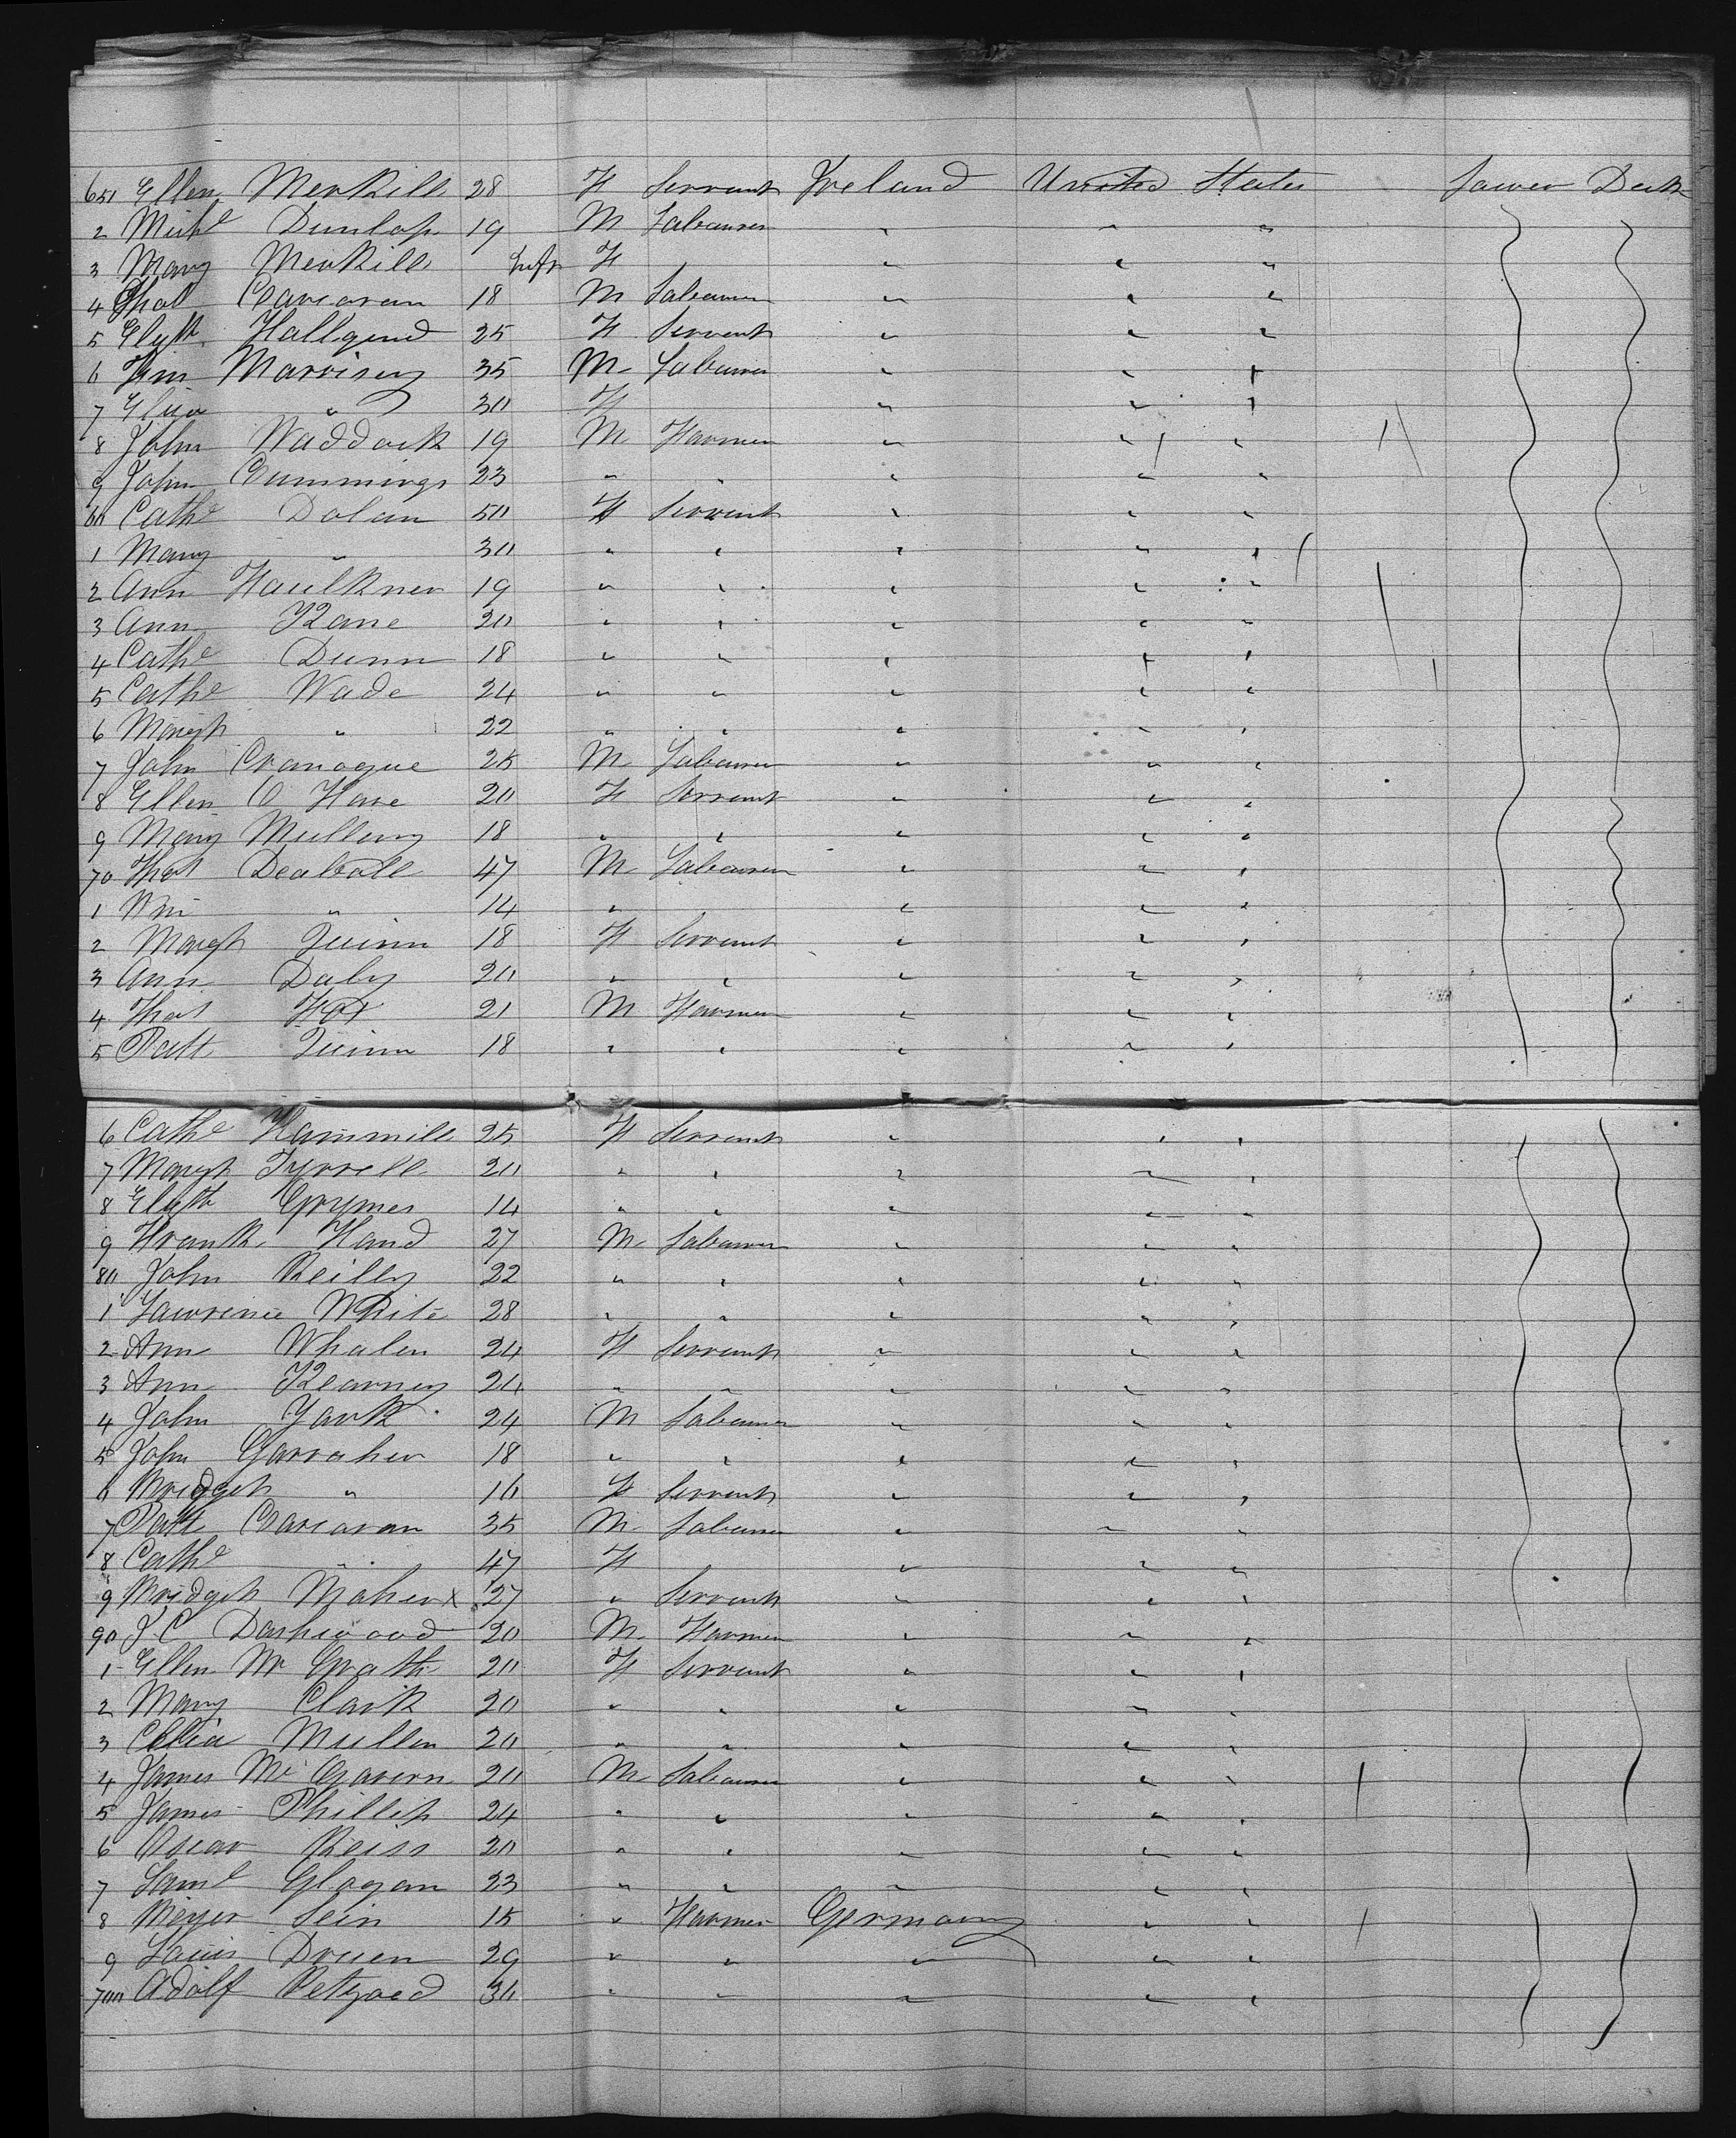 651 Ellen Merkill 28 F Servant Ireland United States Lower Deck
2 Michl Dunlop 19 M Labourer " " "
3 Mary Merkill Inft F " " "
4 Thos Corcoran 18 M Labourer " " "
5 Elizth 25 F Servant " " "
6 Jim Morrisey 35 M Labourer " " "
7 Eliza " 30 F " " "
8 John Waddock 19 M Farmer " " "
9 John Cummings 23 " " " " "
60 Cathe Dolan 50 F Servant " " "
1 Mary " 30 " " " " "
2 Ann Faulkner 19 " " " " "
3 Ann Kane 20 " " " " "
4 Cathe Dunn 18 " " " " "
5 Cathe Wade 24 " " " " "
6 Margt " 22 " " " " "
7 John Cranogue 25 M Labourer " " "
8 Ellen O Hare 20 F Servant " " "
9 Mary Mulleny 18 " " " " "
70 Thos 47 M Labourer " " "
1 Wm " 14 " " " "
2 Margt Quinn 18 F Servant " " "
3 Ann Daly 20 " " " " "
4 Thos Fox 21 M Farmer " " "
5 Patt Quinn 18 " " " " "
6 Cathe Hammill 25 F Servant " " "
7 Margt Tyrrell 20 " " " " "
8 Elizth Grymes 14 " " " " "
9 Frank Hand 27 M Labourer " " "
80 John Reilly 22 " " " " "
1 Lawrence White 28 " " " " "
2 Ann Whalen 24 F Servant " " "
3 Ann Kearney 24 " " " " "
4 John York 24 M Labourer " " "
5 John Garraher 18 " " " " "
6 Bridget " 16 F Servant " " "
7 Patt Corcoran 35 M Labourer " " "
8 Cathe " 47 F " " "
9 Bridget Maher x 27 " Servant " " "
90 J. C Dashwood 20 M Farmer " " "
1 Ellen Mc Grath 20 F Servant " " "
2 Mary Clark 20 " " " " "
3 Celia Mullen 20 " " " " "
4 James Mc Gavern 20 M Labourer " " "
5 James Phillip 24 " " " " "
6 Oscar Reiss 20 " " " " "
7 Saml Glogan 23 " " " " "
8 Meyer Sein 15 " Farmer Germany " "
9 Louis Druen 29 " " " " "
700 Adolf 30 " " " " "